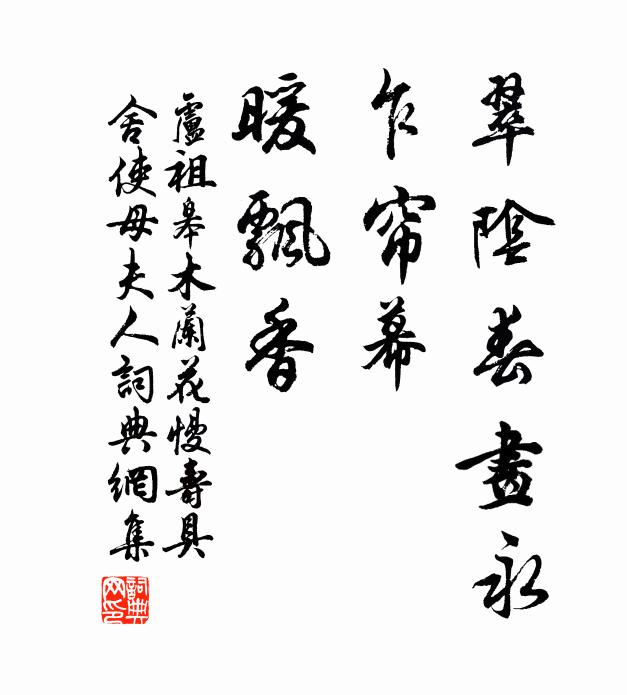 翠陰春晝永
乍帘幕
暖飄香
盧祖皋木蘭花慢壽具
舍使母夫人詞典網集
詞典网印